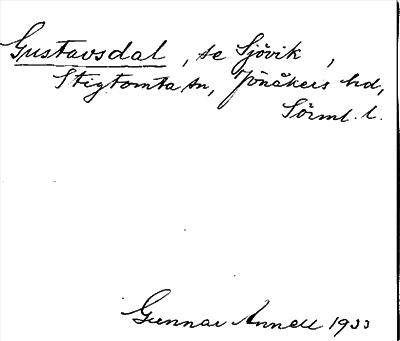 Gustavsdal, se Sjövik,
Stigtomta sn, Jönåkers hd,
Sörml. l.
Gunnar Annell 1933